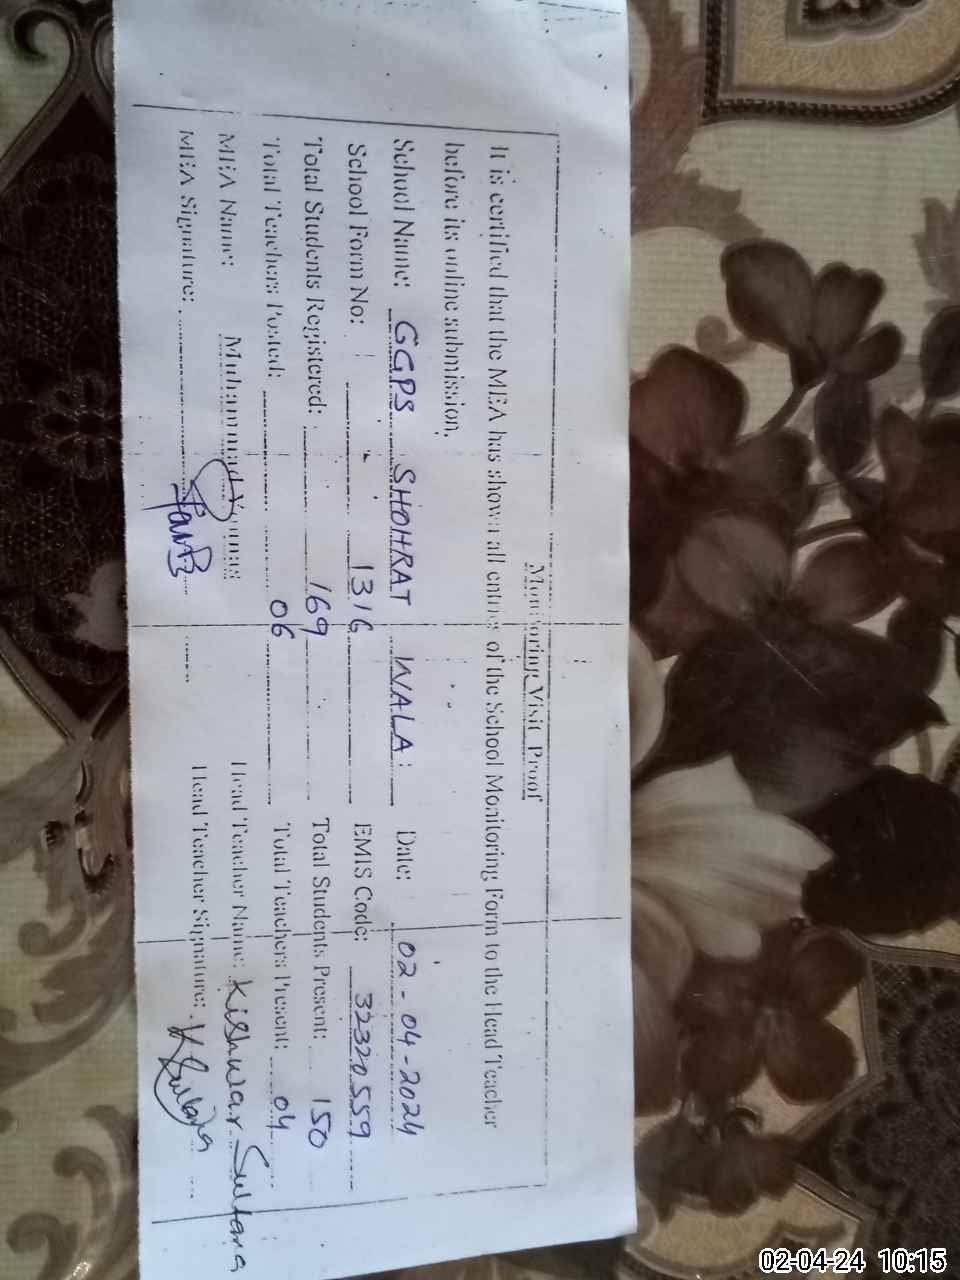 Monitoring Visit Proof
It is certified that the MEA has shown all entries of the School Monitoring Form to the Head Teacher
before its online submission.
School Name: GGPS SHOHRAT WALA Date: 02-04-2024
School Form No: 1316 EMIS Code: 32320559
Total Students Registered: 169 Total Students Present: 150
Total Teachers Posted: 06 Total Teachers Present: 04
MEA Name: Muhammad Younas Head Teacher Name: Kishwar Sultana
MEA Signature: Head Teacher Signature: K Sultana
02-04-24 10:15